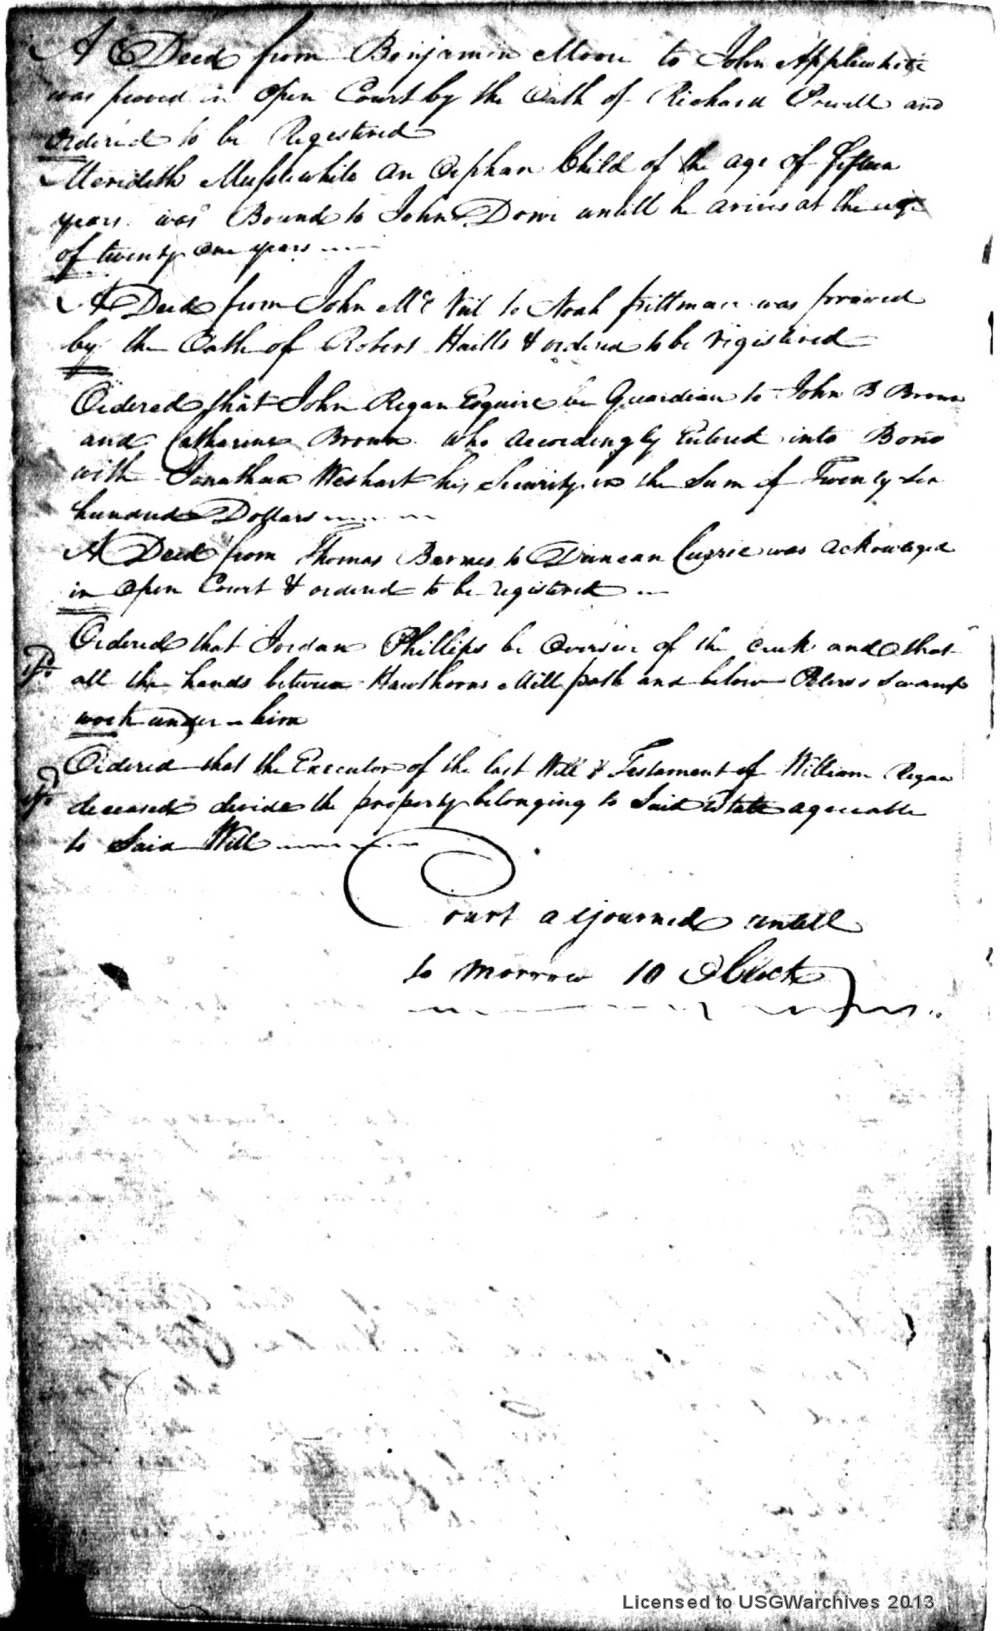 A Deed from Benjamin Moore to John Applewhite
was proved in Open Court by the Oath of Richard Powell and
Ordered to be Registered
Merideth Musslewhite an Orphan Child of the age of fifteen
years was Bound to John Dove untill he arives at the age
of twenty one years
A Deed from John McNeil to Noah Pittman was proved
by the Oath of Robert Haills & ordered to be registered
Ordered that John Regan Esquire be Guardian to John B Brown
and Catharine Brown who accordingly Entered into Bond
with Jonathan Weshart his Security in the Sum of Twenty
hundred Dollars
A Deed from Thomas Barnes to Duncan Currie was acknowleged
in Open Court & ordered to be registered
Ordered that Jordan Phillips be Overseer of the creek and that
all the hands between Hawthorns Mill path and below Swamp
work under him
Ordered that the Executor of the last Will & Testament of William Regan
deceased devide the property belonging to Said Estate agreeable
to Said Will
Court adjourned untill
to morrow 10 OClock
Licensed to USGWarchives 2013